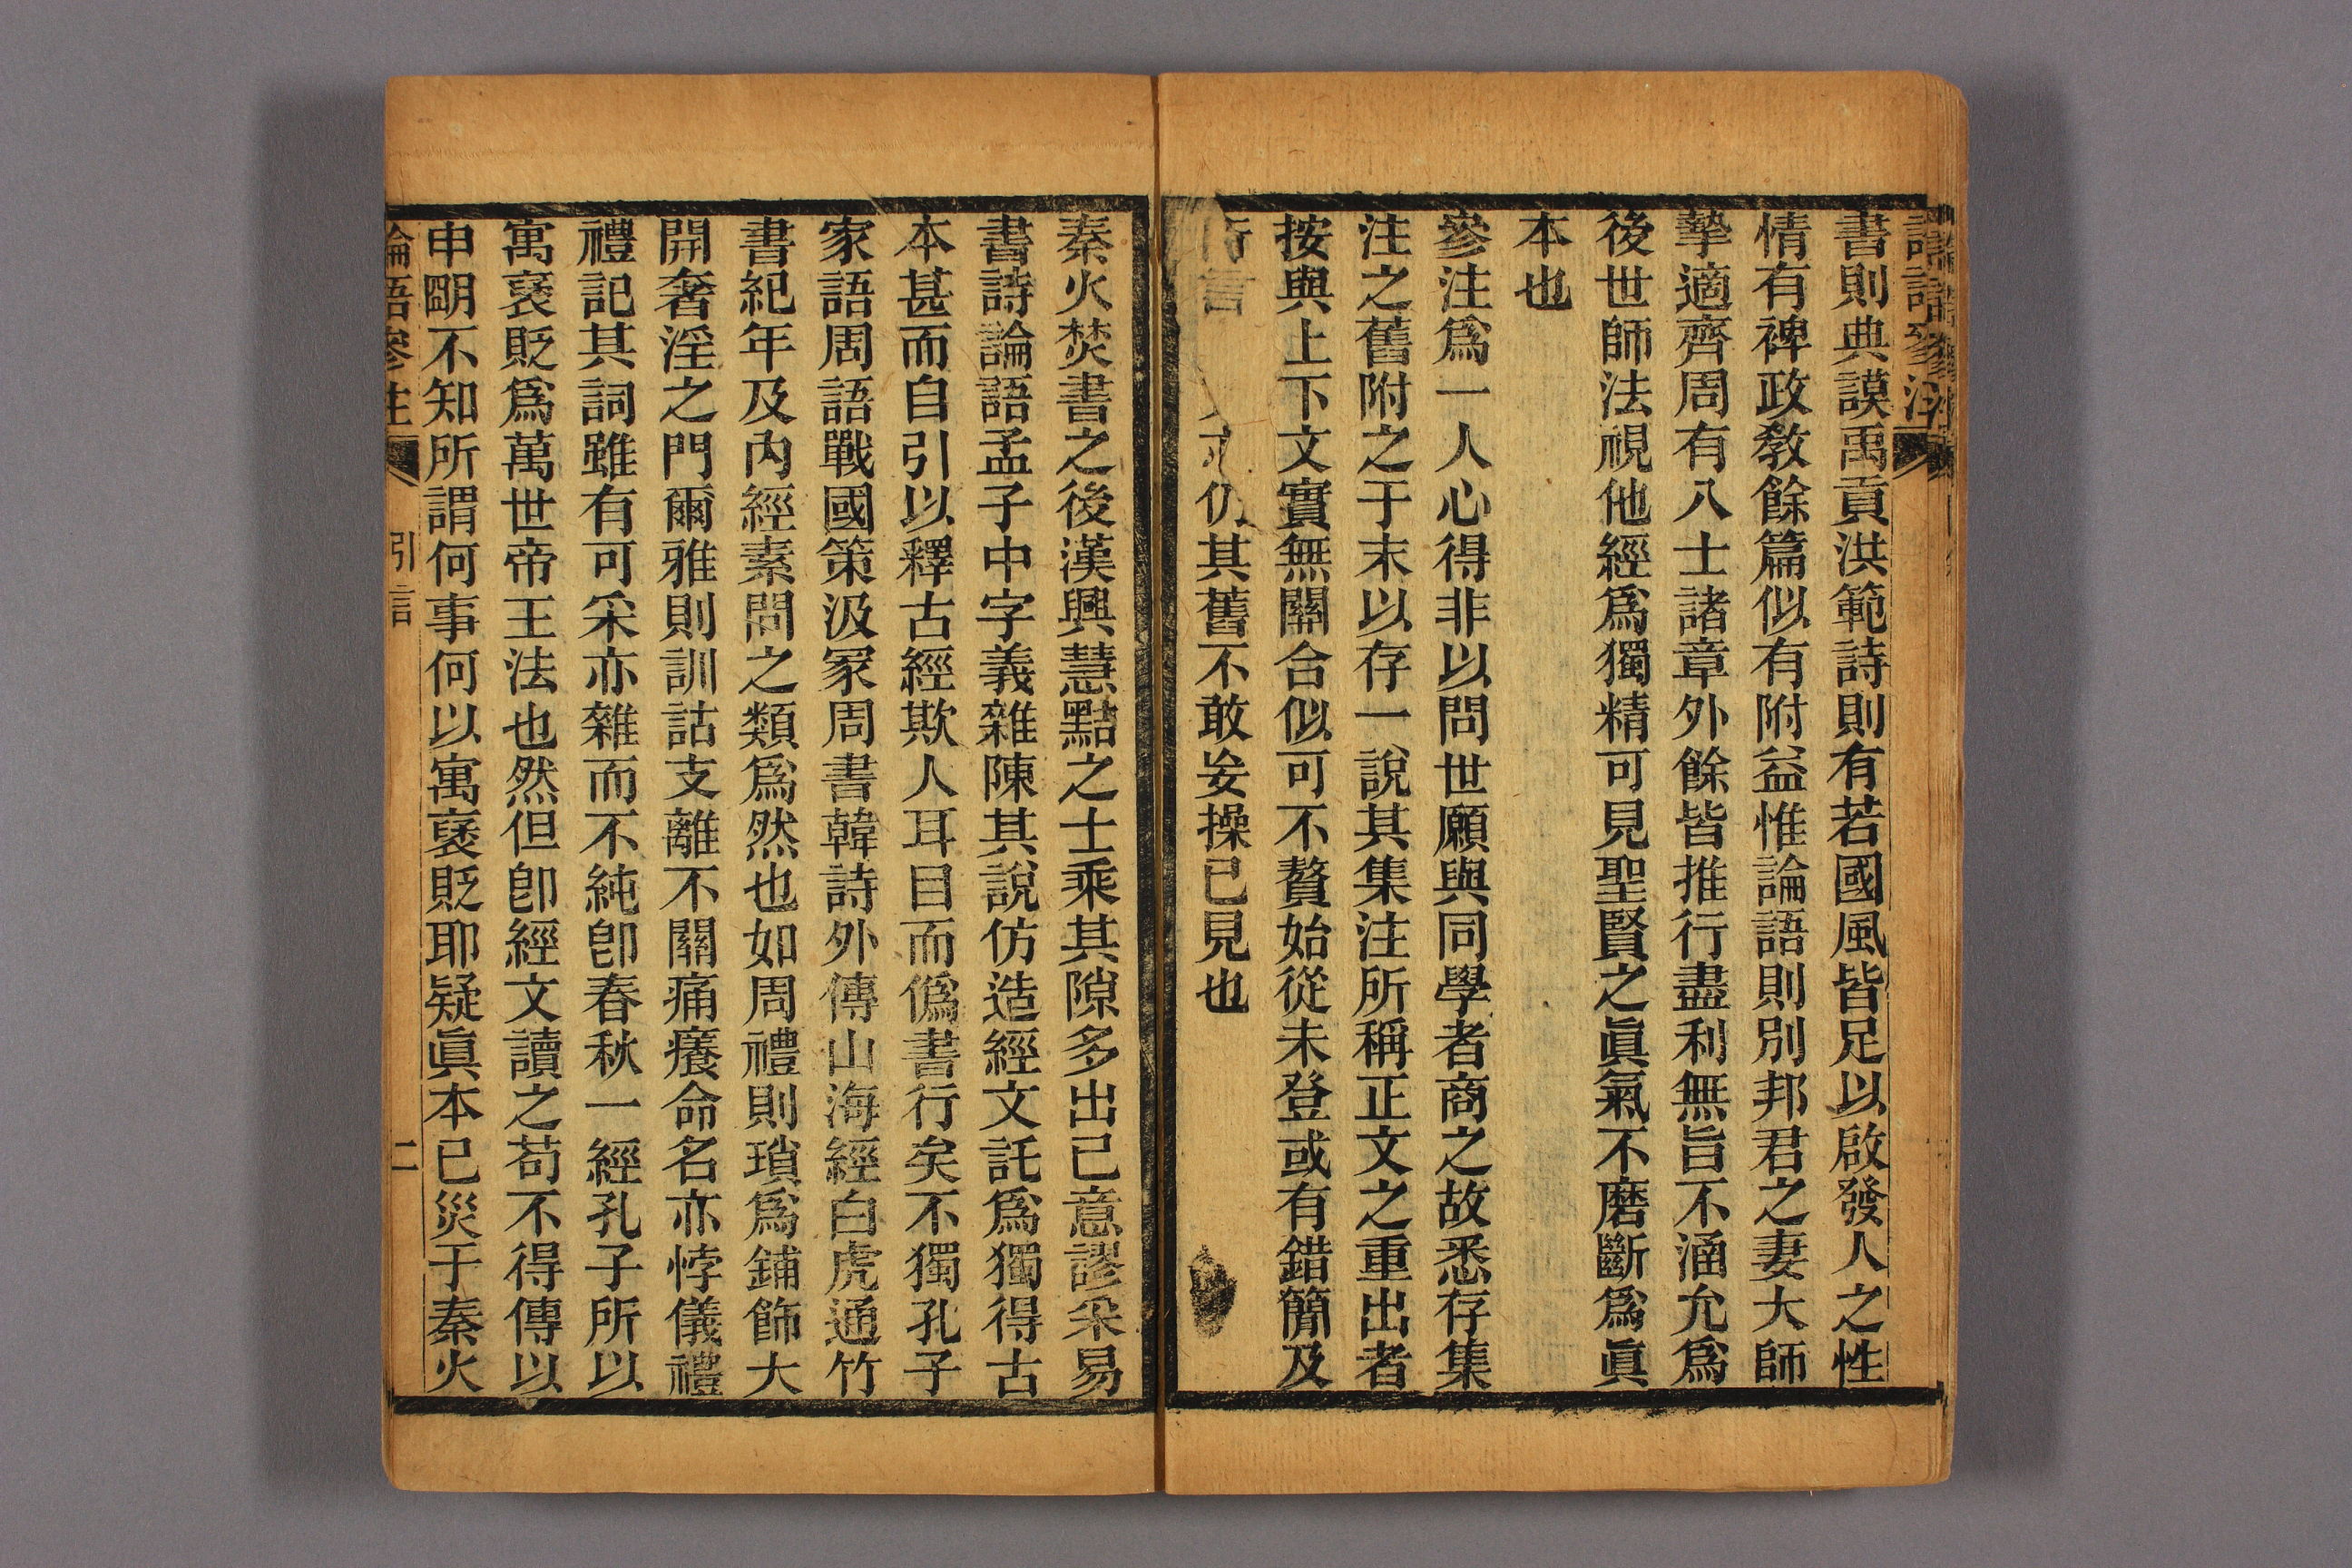 論語參注
書則典謨禹貢洪範詩則有若國風皆足以啟發人之性
情有裨政敎餘篇似有附益惟論語則別邦君之妻大師
摯適齊周有八士諸章外餘皆推行盡利無旨不涵允爲
後世師法視他經爲獨精可見聖賢之眞氣不磨斷爲眞
本也
參注爲一人心得非以問世願與同學者商之故悉存集
注之舊附之于末以存一說其集注所稱正文之重出者
按與上下文實無關合似可不贅始從未登或有錯簡及
仍其舊不敢妄操已見也
秦火焚書之後漢興慧黠之士乘其隙多出己意謬采易
書詩論語孟子中字義雜陳其說仿造經文託爲獨得古
本甚而自引以釋古經欺人耳目而僞書行矣不獨孔子
家語周語戰國策汲冢周書韓詩外傳山海經白虎通竹
書紀年及內經素問之類爲然也如周禮則瑣爲鋪飾大
開奢淫之門爾雅則訓詁支離不關痛癢命名亦悖儀禮
禮記其詞雖有可采亦雜而不純卽春秋一經孔子所以
寓褒貶爲萬世帝王法也然但卽經文讀之苟不得傳以
申明不知所謂何事何以寓褒貶耶疑眞本已災于秦火
論語參注 引言 二